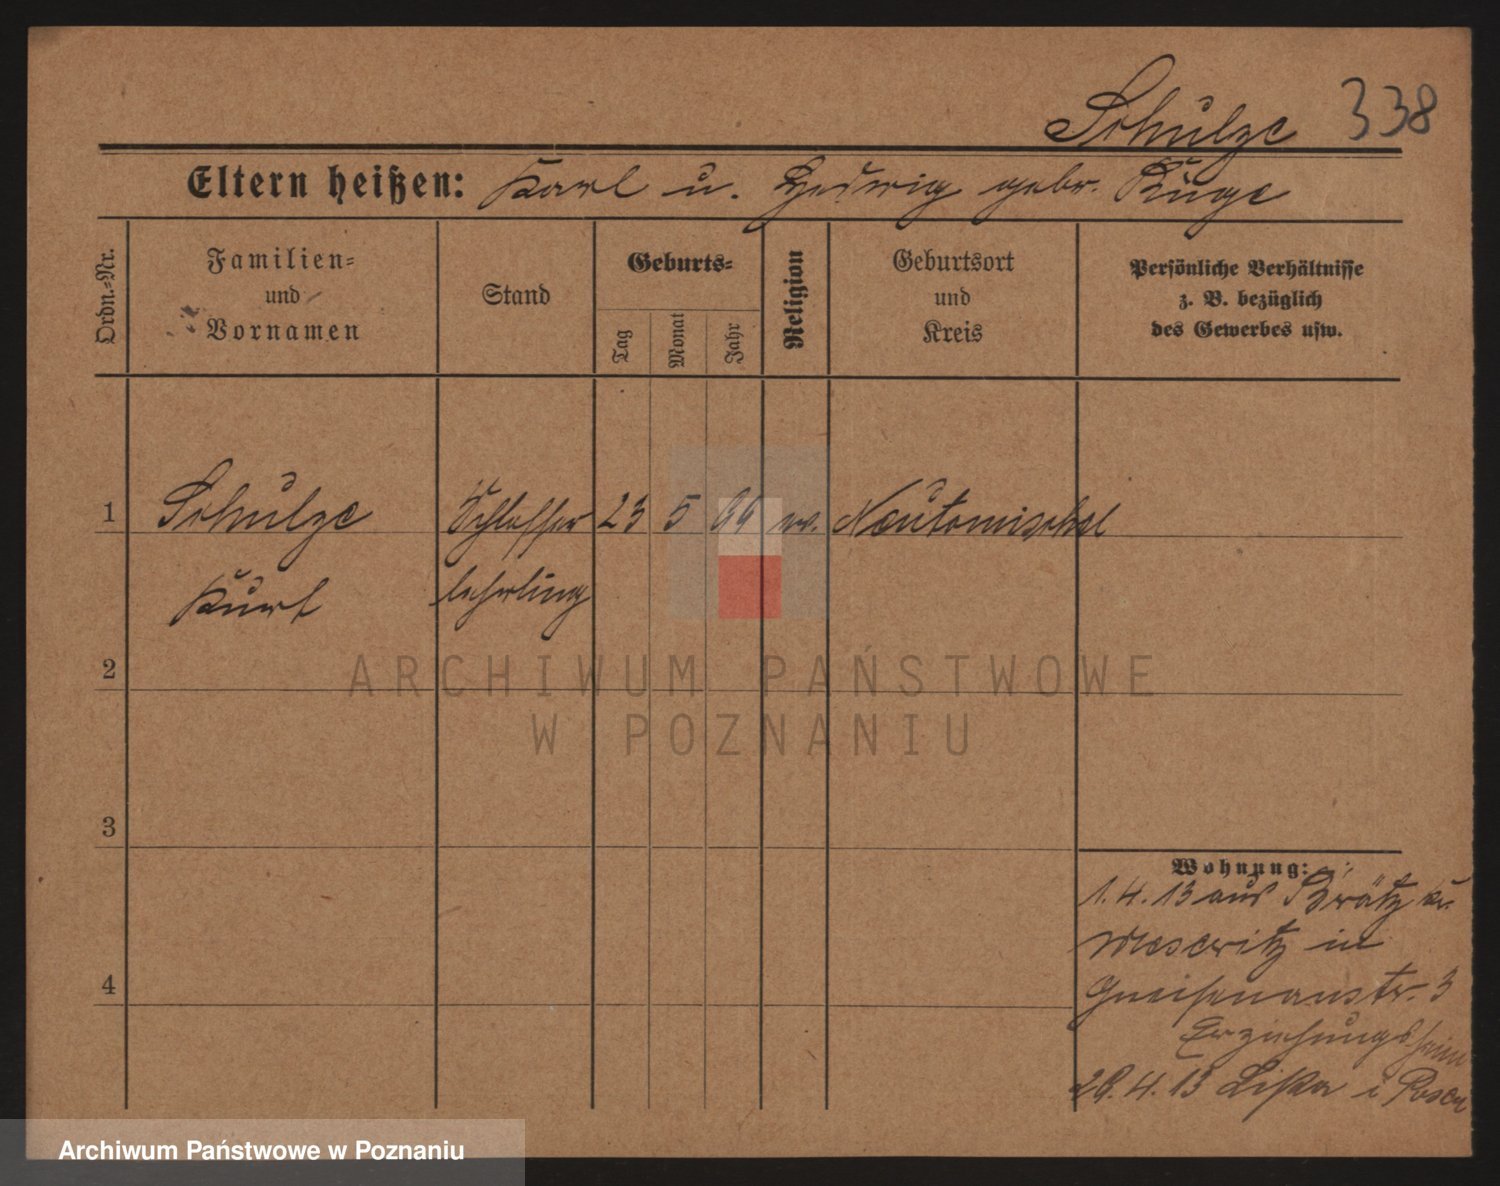 Schulze 338
Eltern heißen: Karl u. Hedwig gebr. Ruge
Ordn.-Nr.
Familien-
und
Vornamen
Stand
Geburts-
Tag
Monat
Jahr
Religion
Geburtsort
und
Kreis
Persönliche Verhältnisse
z. B. bezüglich
des Gewerbes usw.
1 Schulze Schlosser 23 5 99 ev. Neutomischel
Kurt lehrling
2
ARCHIWUM PAŃSTWOWE
W POZNANIU
3
Wohnung:
1.4.13 aus Brätz Kr.
Meseritz in
4
Gneisenaustr. 3
Erziehungsheim
28.4.13 i Posen
Archiwum Państwowe w Poznaniu